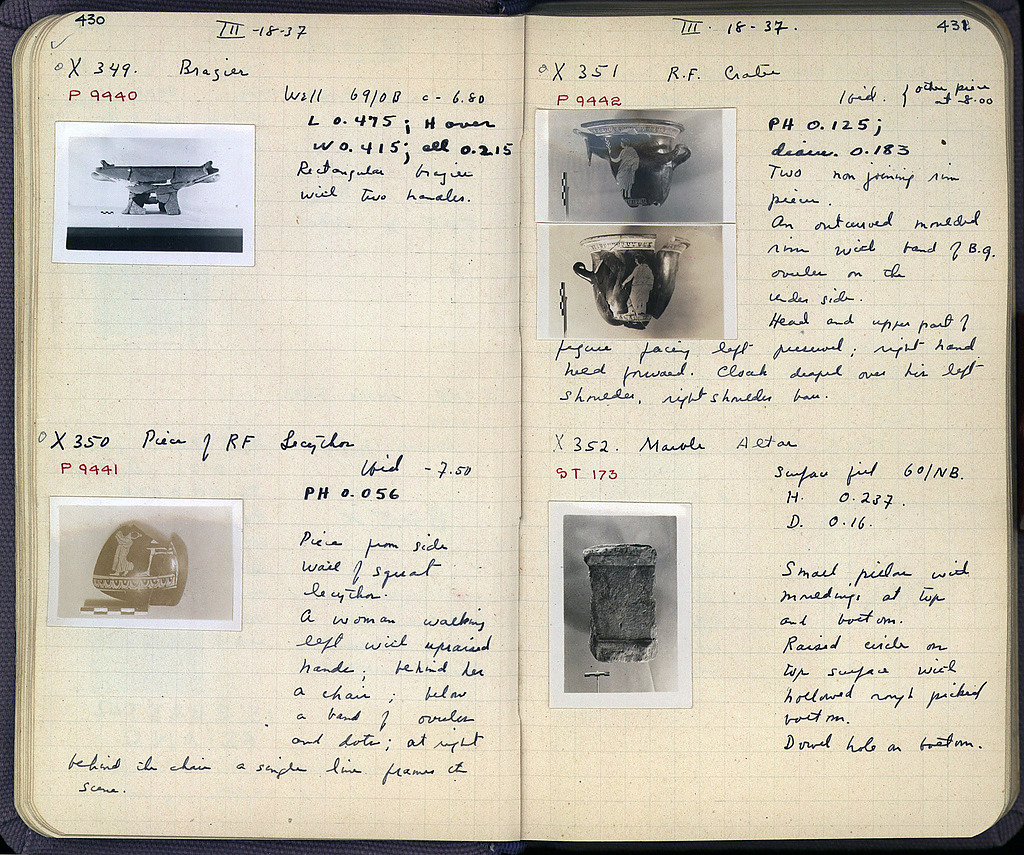 430
III -18-37
X 349. Brazier
P 9940
Well 69/0B c - 6.80
L 0.475; H over
W 0.415; all 0.215
Rectangular brazier
with two handles.
X 350 Piece of RF Lecythos
P 9441
Ibid - 7.50
PH 0.056
Piece from side
wall of squat
lecythos.
A woman walking
left with upraised
hands; behind her
a chair; below
a band of ovules
and dots; at right
behind the chair a single line frames the
scene.
431
III - 18-37.
X 351 R.F. Crater
P 9442
Ibid. { other piece
at -8.00
PH 0.125;
diam. 0.183
Two non joining rim
pieces.
An outcurved moulded
rim with band of B.g.
ovules on the
under side.
Head and upper part of
figure facing left preserved; right hand
held forward. Cloak draped over his left
shoulder, right shoulder bare.
X 352. Marble Altar
ST 173
Surface fill 60/NB.
H. 0.237.
D. 0.16.
Small pillar with
mouldings at top
and bottom.
Raised circle on
top surface with
hollowed rough picked
bottom.
Dowel hole on bottom.